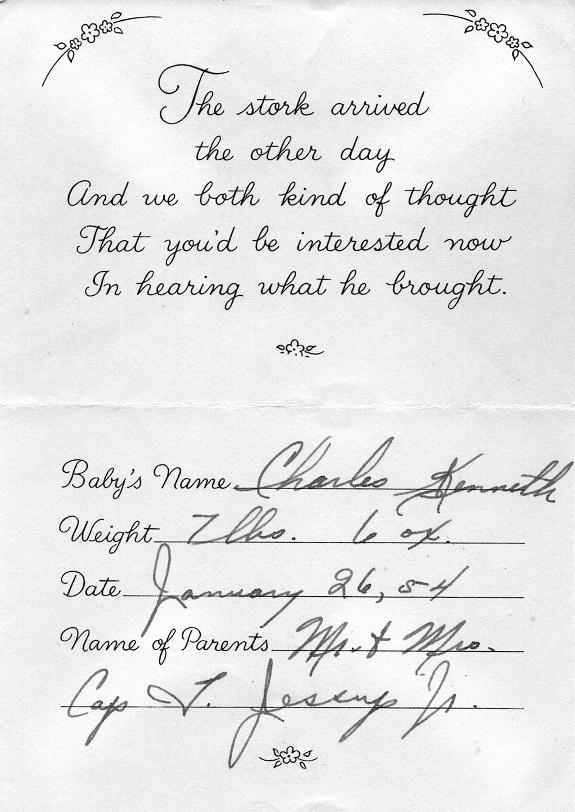 The stork arrived
the other day
And we both kind of thought
That you'd be interested now
In hearing what he brought.
Baby's Name Charles Kenneth
Weight 7 lbs. 6 oz.
Date January 26, 54
Name of Parents Mr. & Mrs.
Cap T. Jessup Jr.